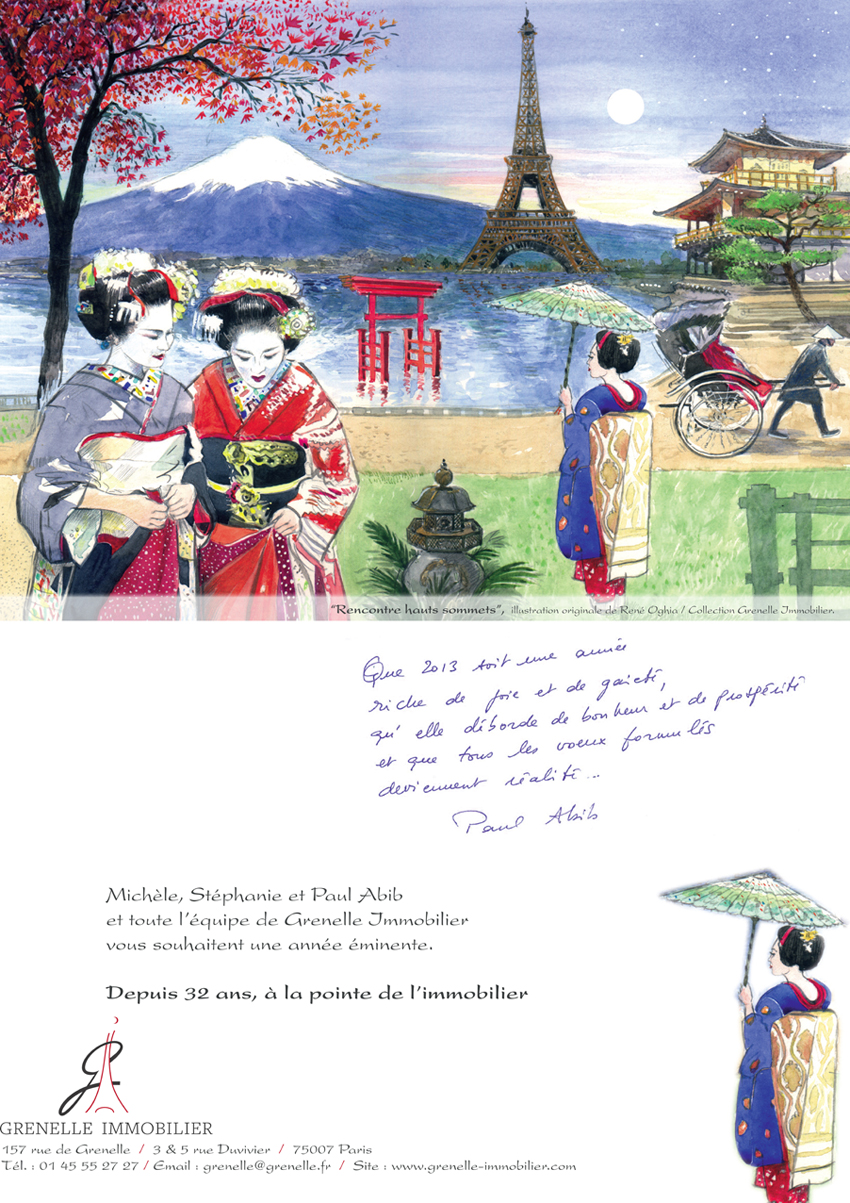 "Rencontre hauts sommets", illustration originale de René Oghia / Collection Grenelle Immobilier.
Que 2013 soit une année
riche de joie et de gaieté,
qu'elle déborde de bonheur et de prospérité
et que tous les voeux formulés
deviennent réalité...
Paul Abib
Michèle, Stéphanie et Paul Abib
et toute l'équipe de Grenelle Immobilier
vous souhaitent une année éminente.
Depuis 32 ans, à la pointe de l'immobilier
GRENELLE IMMOBILIER
157 rue de Grenelle / 3 & 5 rue Duvivier / 75007 Paris
Tél. : 01 45 55 27 27 / Email : grenelle@grenelle.fr / Site : www.grenelle-immobilier.com